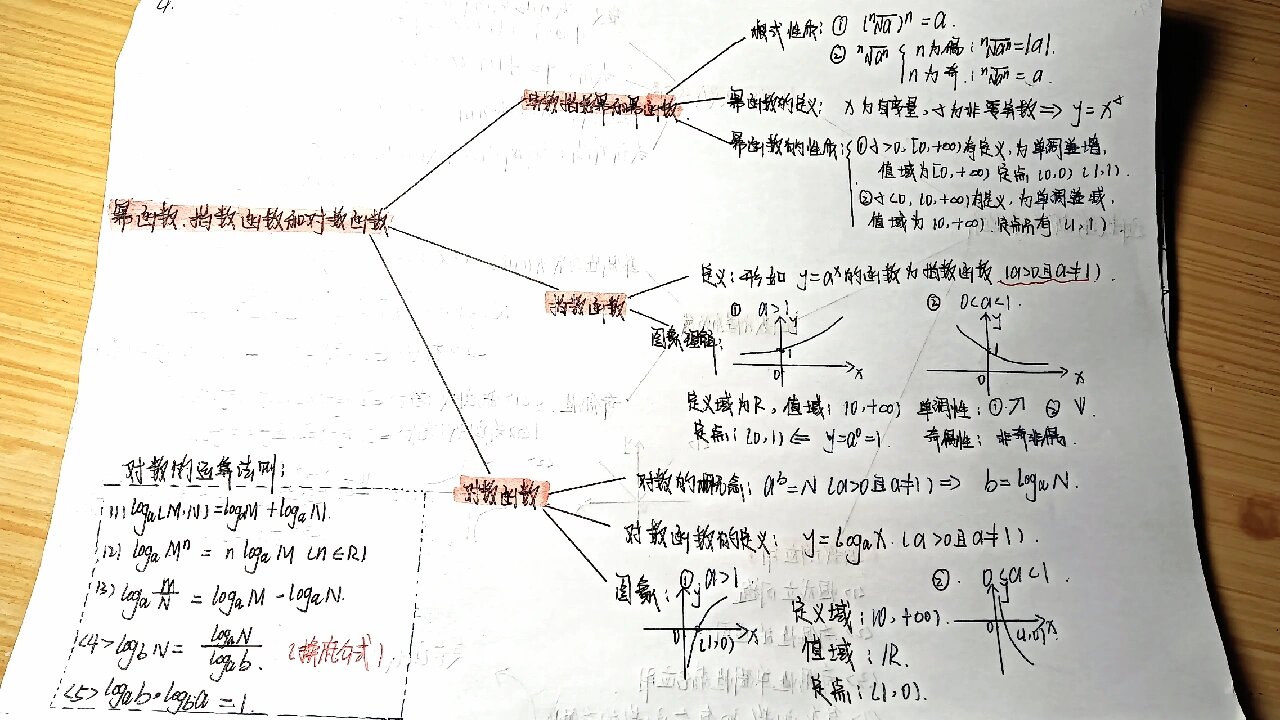 4.
根式性质：① (ⁿ√a)ⁿ = a.
② ⁿ√aⁿ { n为偶：ⁿ√aⁿ = |a|.
n为奇：ⁿ√aⁿ = a.
实数指数幂和幂函数
幂函数的定义：x为自变量，α为非零常数 ⇒ y = x^α
幂函数的性质：{ ①α>0. [0,+∞)有定义，为单调递增，
值域为[0,+∞) 定点(0,0) (1,1).
②α<0, (0,+∞)有定义，为单调递减，
值域为(0,+∞) 定点有(1,1)
幂函数.指数函数和对数函数
定义：形如 y=aˣ的函数为指数函数 (a>0且a≠1).
指数函数
① a>1 ② 0<a<1.
图象
y 1 0 x
y 1 0 x
定义域为R，值域：(0,+∞) 单调性：①↗ ②↓.
定点：(0,1) ⇐ y=a⁰=1. 奇偶性：非奇非偶.
对数函数
对数的概念：aᵇ=N (a>0且a≠1) ⇒ b=logₐN.
对数函数的定义：y=logₐx.(a>0且a≠1).
图象：① a>1 y 0 (1,0) x
定义域：(0,+∞).
值域：R.
定点：(1,0).
②. 0<a<1. y 0 (1,0) x
对数的运算法则：
(1) logₐ(M·N)=logₐM+logₐN.
(2) logₐMⁿ = n logₐM (n∈R)
(3) logₐ M/N = logₐM - logₐN.
<4> log_b N = logₐN / logₐb. (换底公式)
<5> logₐb·log_b a = 1.